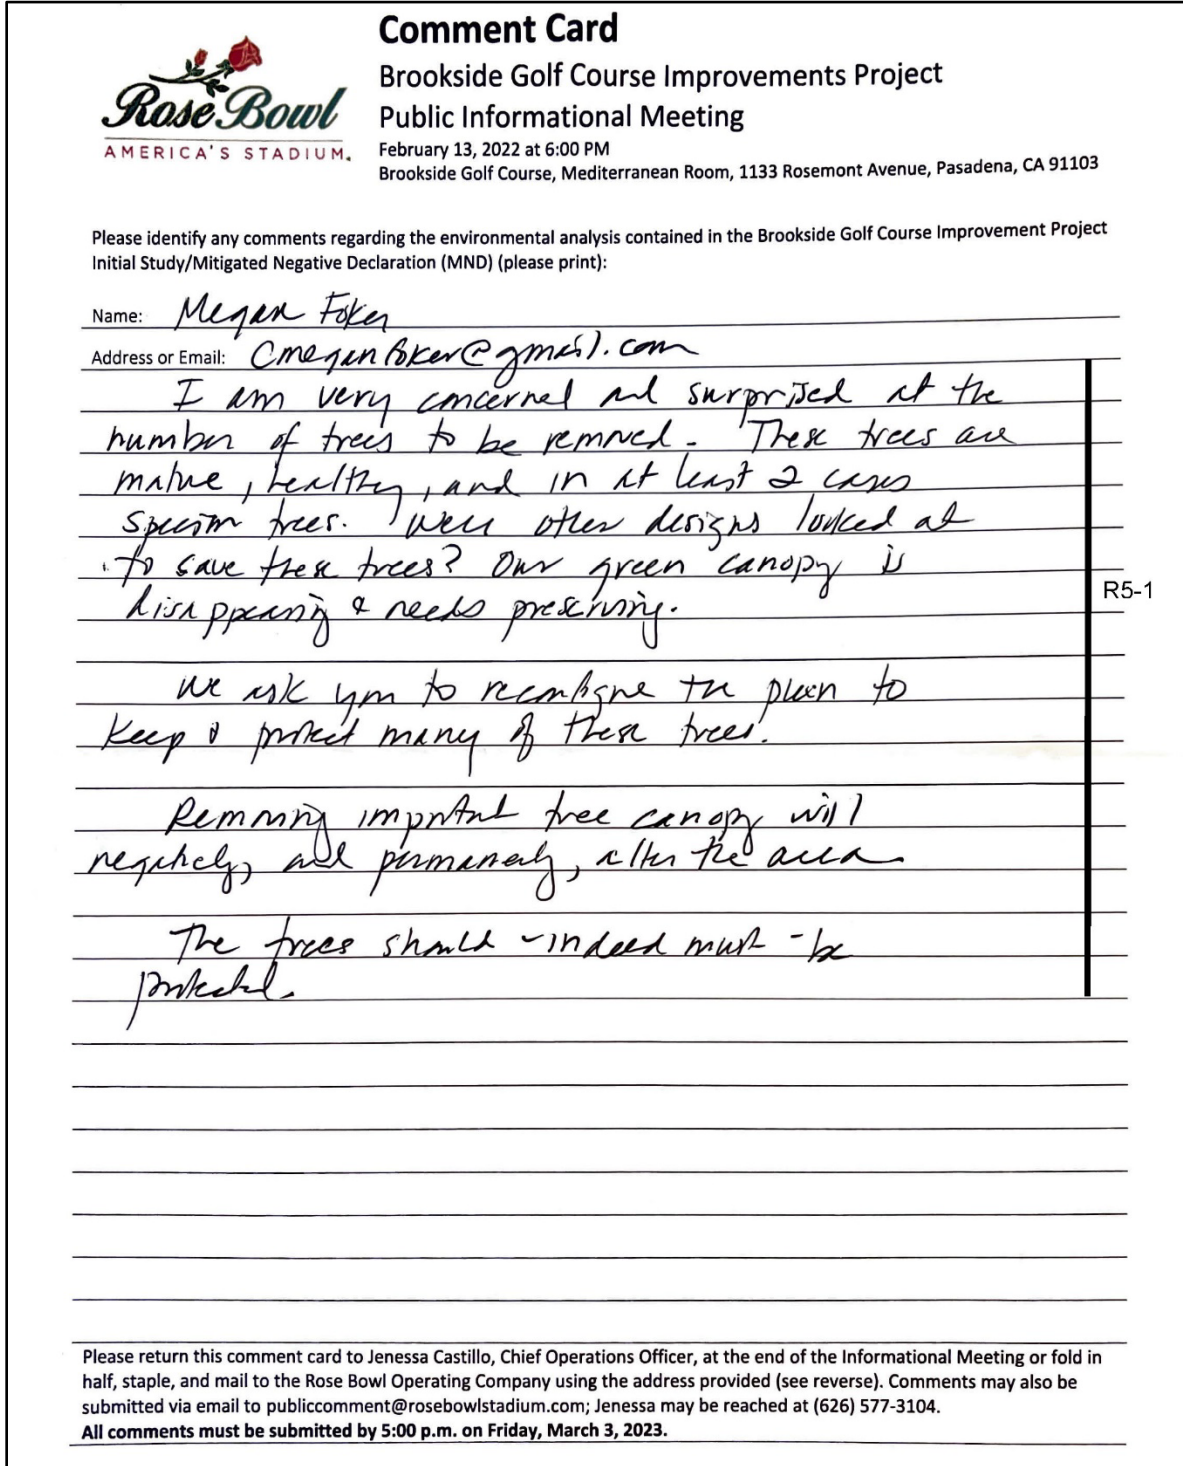 Rose Bowl
AMERICA'S STADIUM.
Comment Card
Brookside Golf Course Improvements Project
Public Informational Meeting
February 13, 2022 at 6:00 PM
Brookside Golf Course, Mediterranean Room, 1133 Rosemont Avenue, Pasadena, CA 91103
Please identify any comments regarding the environmental analysis contained in the Brookside Golf Course Improvement Project
Initial Study/Mitigated Negative Declaration (MND) (please print):
Name: Megan Foker
Address or Email: Cmeganfoker@gmail.com
I am very concerned and surprised at the
number of trees to be removed. These trees are
mature, healthy, and in at least 2 cases
specimen trees. Were other designs looked at
to save these trees? Our green canopy is
disappearing & needs preserving.
R5-1
We ask you to reconfigure the plan to
keep & protect many of these trees.
Removing important tree canopy will
negatively, and permanently, alter the area.
The trees should - indeed must - be
protected.
Please return this comment card to Jenessa Castillo, Chief Operations Officer, at the end of the Informational Meeting or fold in
half, staple, and mail to the Rose Bowl Operating Company using the address provided (see reverse). Comments may also be
submitted via email to publiccomment@rosebowlstadium.com; Jenessa may be reached at (626) 577-3104.
All comments must be submitted by 5:00 p.m. on Friday, March 3, 2023.